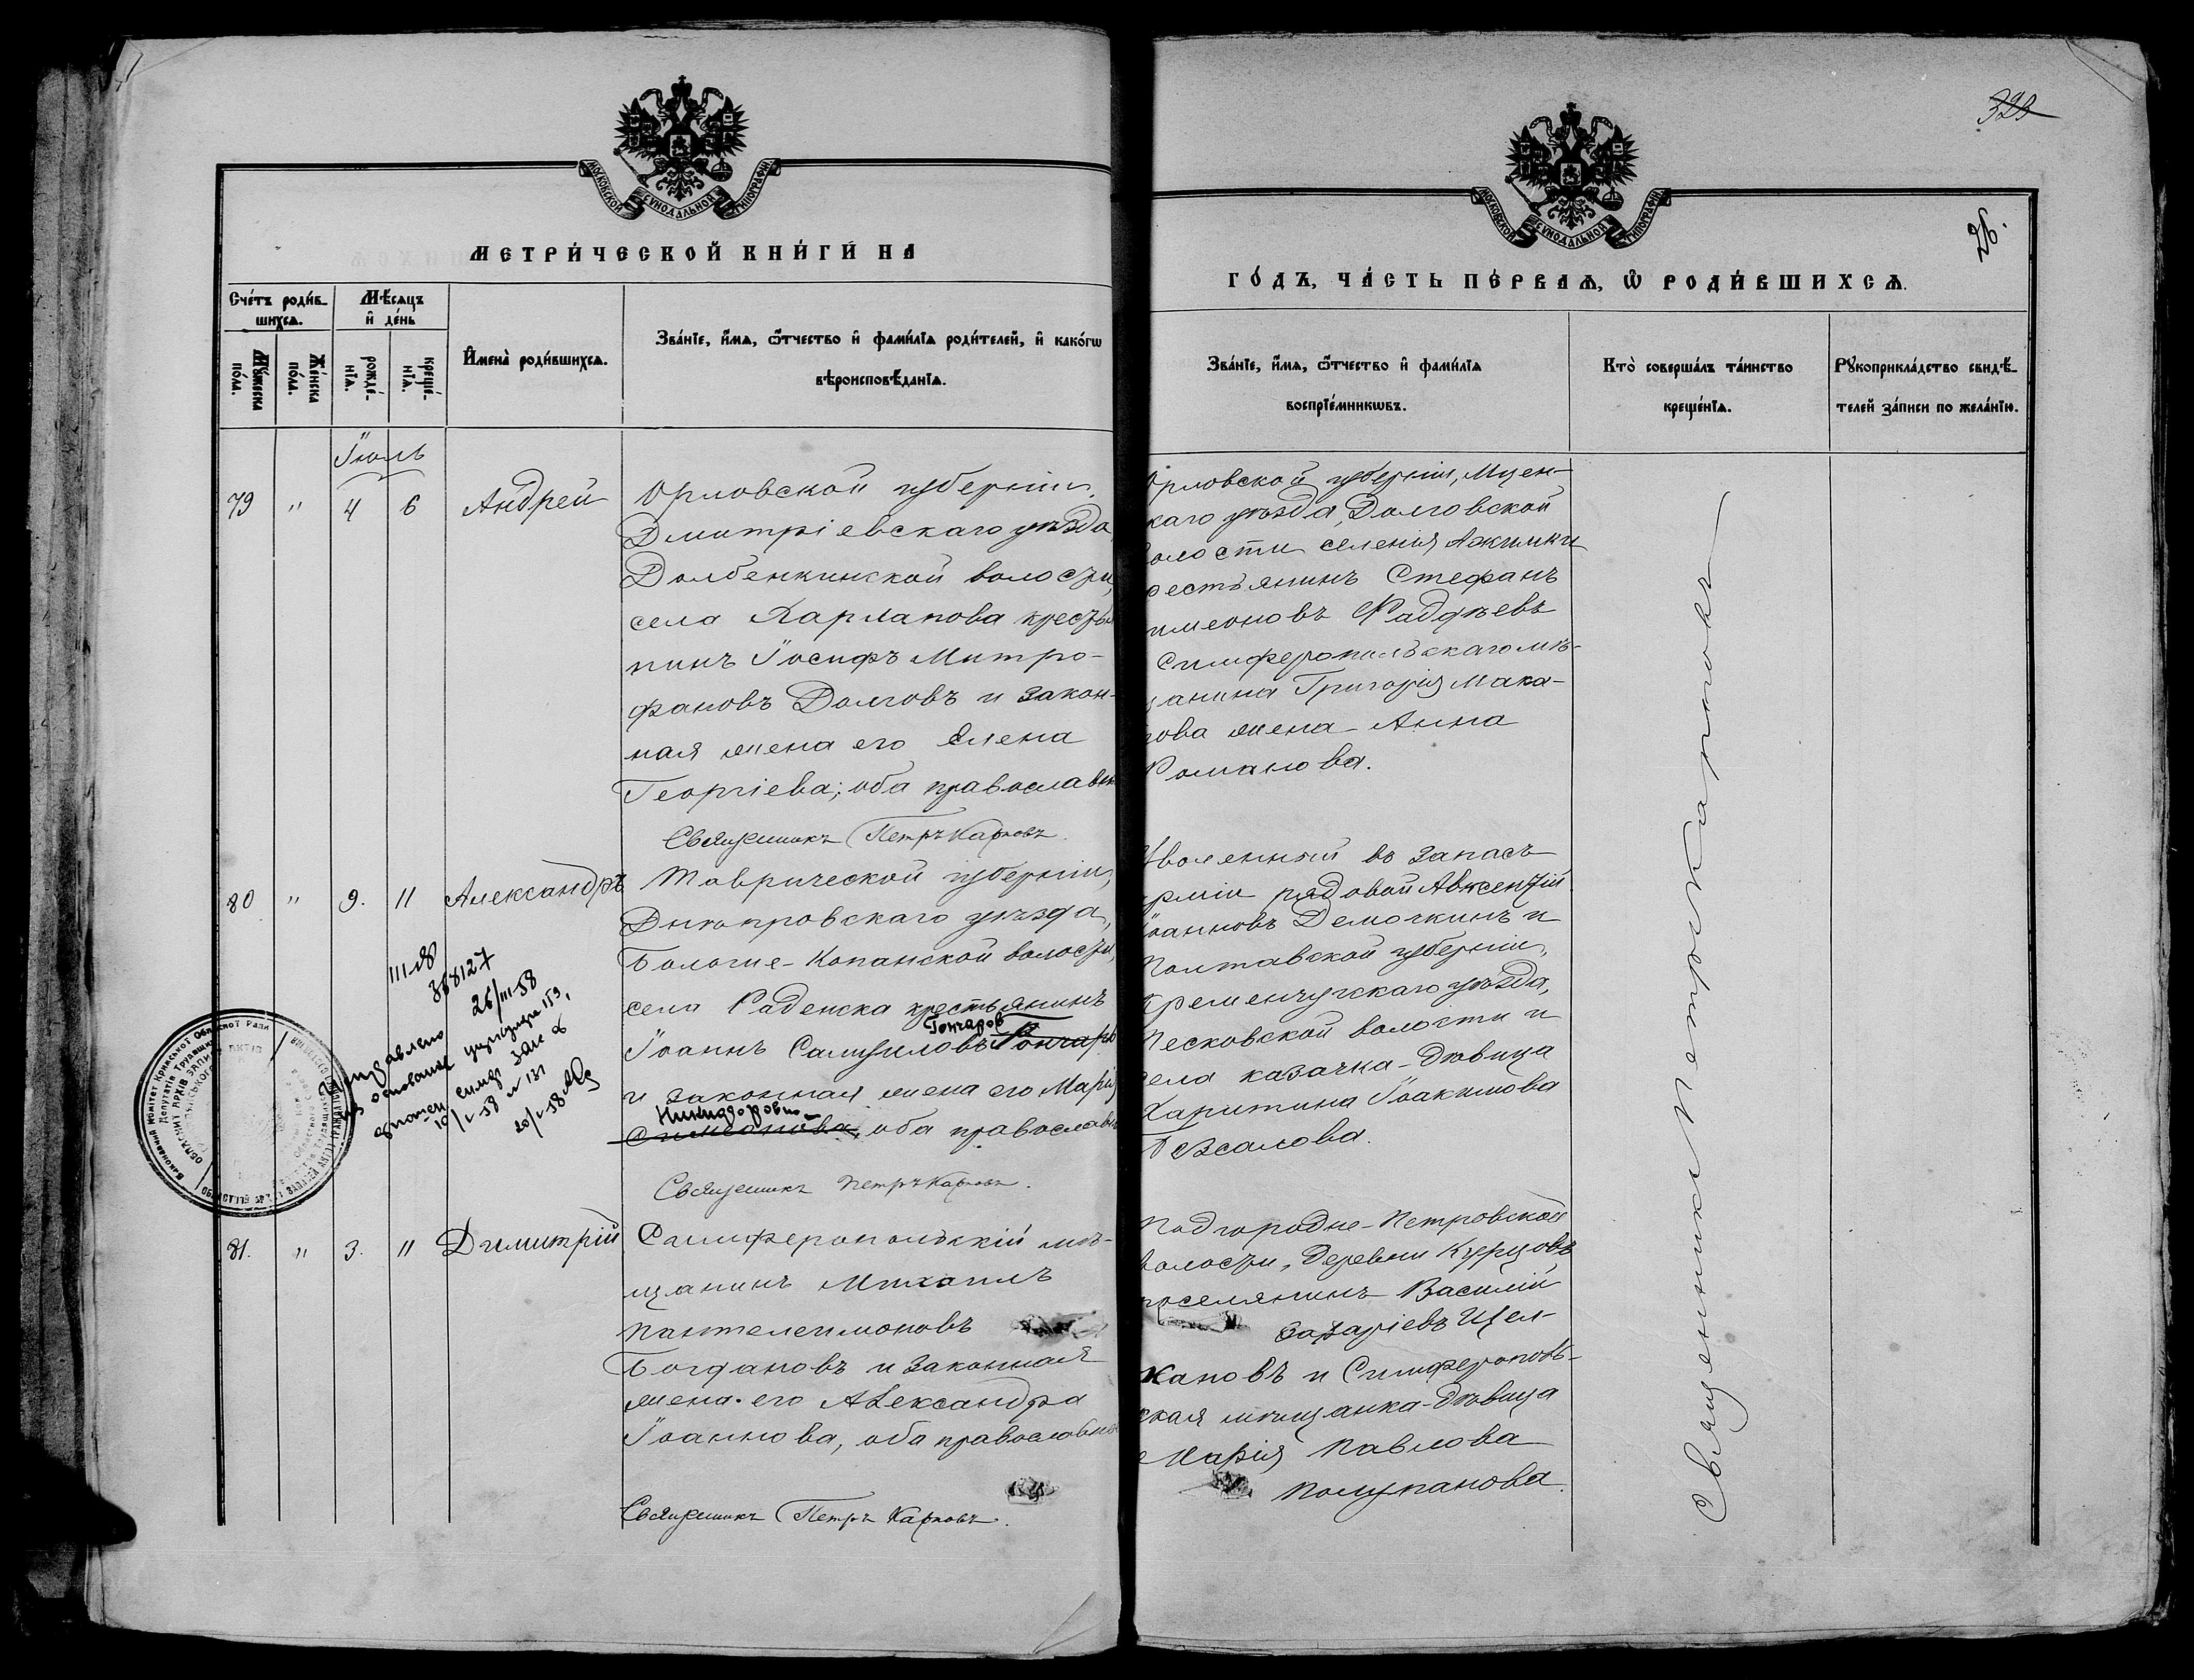 МОСКОВСКОЙ СѴНОДАЛЬНОЙ ТИПОГРАФІИ
МЕТРИ́ЧЕСКОЙ КНИ́ГИ НА
Сче́тъ роди́в-
шихсѧ.
Мꙋ́жеска
по́ла.
Же́нска
по́ла.
Мѣ́сѧцъ
и҆ де́нь
рожде́-
нїѧ.
креще́-
нїѧ.
И҆мена̀ роди́вшихсѧ.
Зва́нїе, и҆́мѧ, ѻ҆́тчество и҆ фами́лїѧ роди́телей, и҆ како́гѡ
вѣроисповѣ́данїѧ.
Іюль
79 " 4 6 Андрей
Орловской губерніи,
Дмитріевскаго уѣзда,
Долбенкинской волости,
села Харланова крестья
нинъ Іосифъ Митро-
фановъ Долговъ и закон-
ная жена его Елена
Георгіева; оба православн
Священникъ Петръ Карповъ.
80 " 9. 11 Александръ
Таврической губерніи,
Днѣпровскаго уѣзда,
Большe-Копанской волости,
села Раденска крестьянинъ
Гончаров
Іоаннъ Самуиловъ Гончаръ
и законная жена его Марія
Никидоровна
Симеонова, оба православн
Священникъ Петръ Карповъ.
III ЯЮ
368127
26/III-58
Исправлено
на основании
10/V-58 № 131
20/V-58
81. " 3. 11 Димитрій
Симферопольскій мѣ-
щанинъ Михаилъ
Пантелеимоновъ
Богдановъ и законная
жена его Александра
Іоаннова, оба православно
Священникъ Петръ Карповъ.
323
26.
МОСКОВСКОЙ СѴНОДАЛЬНОЙ ТИПОГРАФІИ
ГО́ДЪ, ЧА́СТЬ ПЕ́РВАѦ, Ѡ҆ РОДИ́ВШИХСѦ.
Зва́нїе, и҆́мѧ, ѻ҆́тчество и҆ фами́лїѧ
воспрїе́мникѡвъ.
Кто̀ соверша́лъ та́инство
креще́нїѧ.
Рꙋкоприкла́дство свидѣ́-
телей за́писи по жела́нїю.
Орловской губерніи, Мцен-
каго уѣзда, Долговской
олости селенія Ажимки
рестьянинъ Стефанъ
имеоновъ Фаддѣевъ
Симферопольскаго мѣ-
щанина Григорія Мака-
рова жена Анна
Романова.
Уволенный въ запасъ
рміи рядовой Авксентій
Іоанновъ Демочкинъ и
Полтавской губерніи,
Кременчугскаго уѣзда,
Песковской волости и
села казачка-дѣвица
Харитина Іоакимова
Безсалова.
Подгородне-Петровской
волости, деревни Курцовъ
поселянинъ Василій
Захаріевъ Щел-
кановъ и Симферополь-
ская мѣщанка-дѣвица
Марія Павлова
Полупанова.
Священникъ Петръ Карповъ